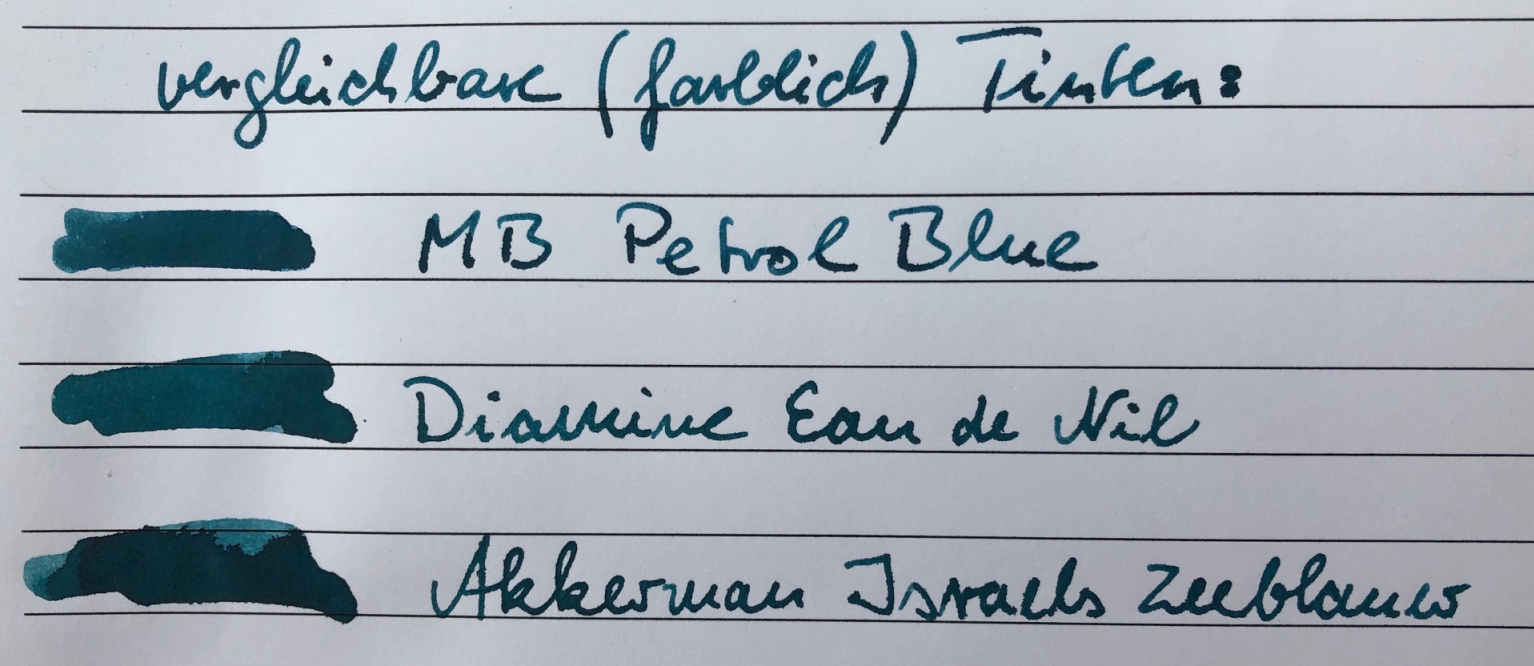 vergleichbare (farblich) Tinten:
MB Petrol Blue
Diamine Eau de Nil
Akkerman Israels Zeeblauw